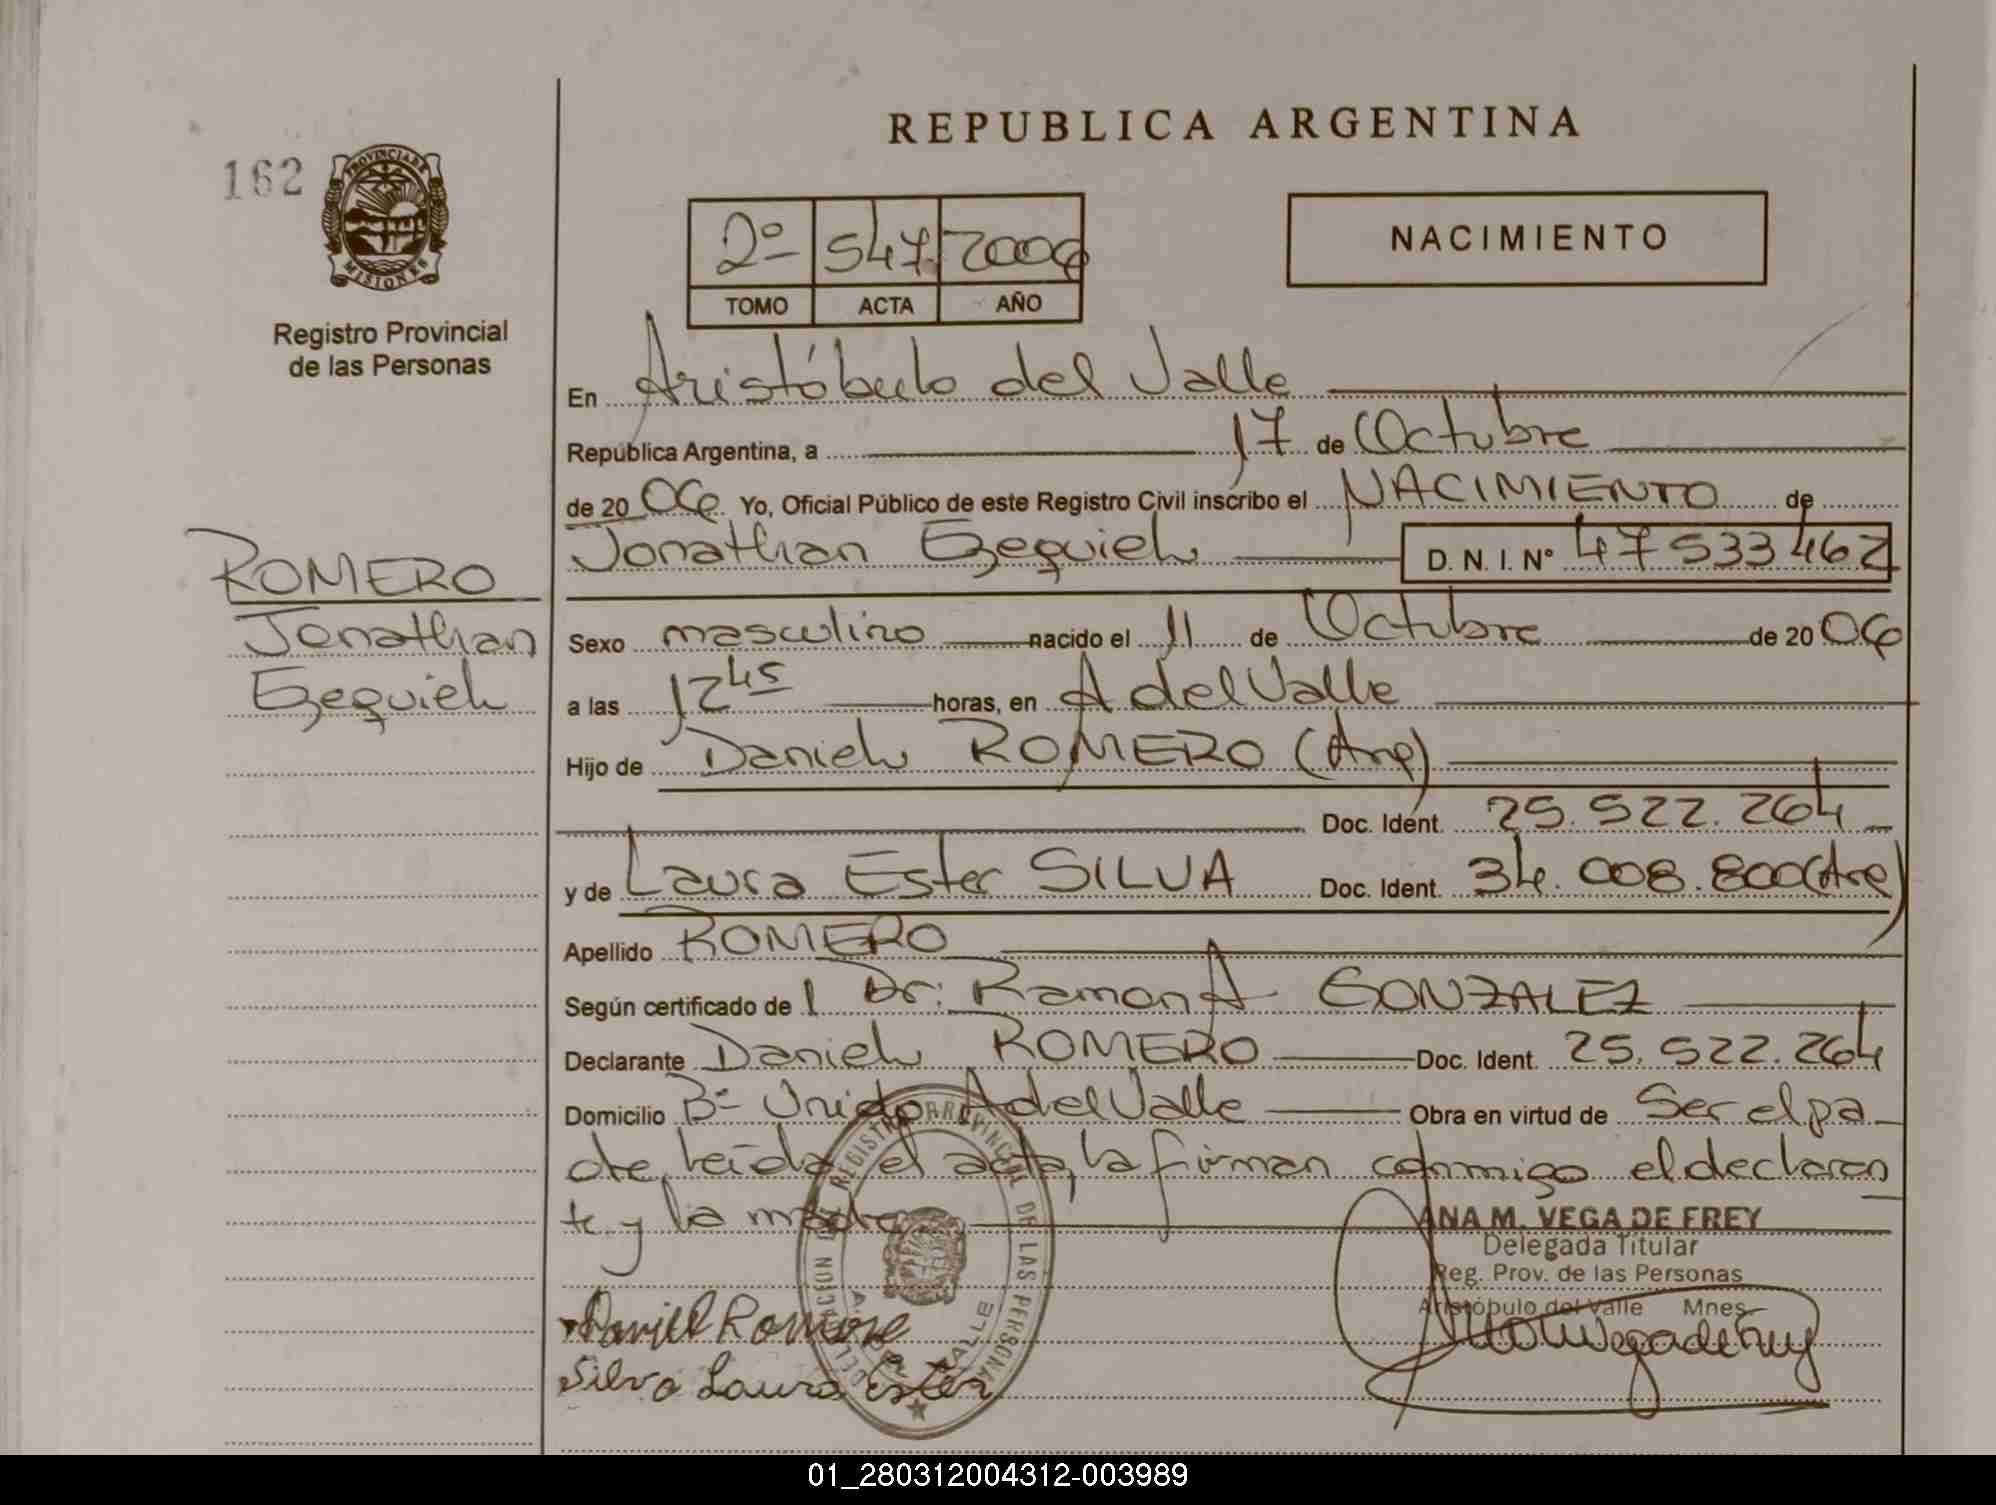 REPUBLICA ARGENTINA
162
PROVINCIA DE
MISIONES
Registro Provincial
de las Personas
2º 547 2006
TOMO ACTA AÑO
NACIMIENTO
En Aristóbulo del Valle
República Argentina, a 17 de Octubre
de 2006 Yo, Oficial Público de este Registro Civil inscribo el NACIMIENTO de
Jonathan Ezequiel D. N. I. Nº 47 533 462
ROMERO
Jonathan
Ezequiel
Sexo masculino nacido el 11 de Octubre de 2006
a las 12 45 horas, en A del Valle
Hijo de Daniel ROMERO (Arg)
Doc. Ident. 25.522.264
y de Laura Ester SILVA Doc. Ident. 34.008.800 (Arg)
Apellido ROMERO
Según certificado de l Dr. Ramon A GONZALEZ
Declarante Daniel ROMERO Doc. Ident. 25.522.264
Domicilio Bº Unido A del Valle Obra en virtud de Ser el pa
dre, leída el acta, la firman conmigo el declaran
te y la madre
ANA M. VEGA DE FREY
Delegada Titular
Reg. Prov. de las Personas
Aristóbulo del Valle Mnes.
Daniel Romero
Silva Laura Ester
DELEGACION DEL REGISTRO PROVINCIAL DE LAS PERSONAS
A. DEL VALLE
01_280312004312-003989